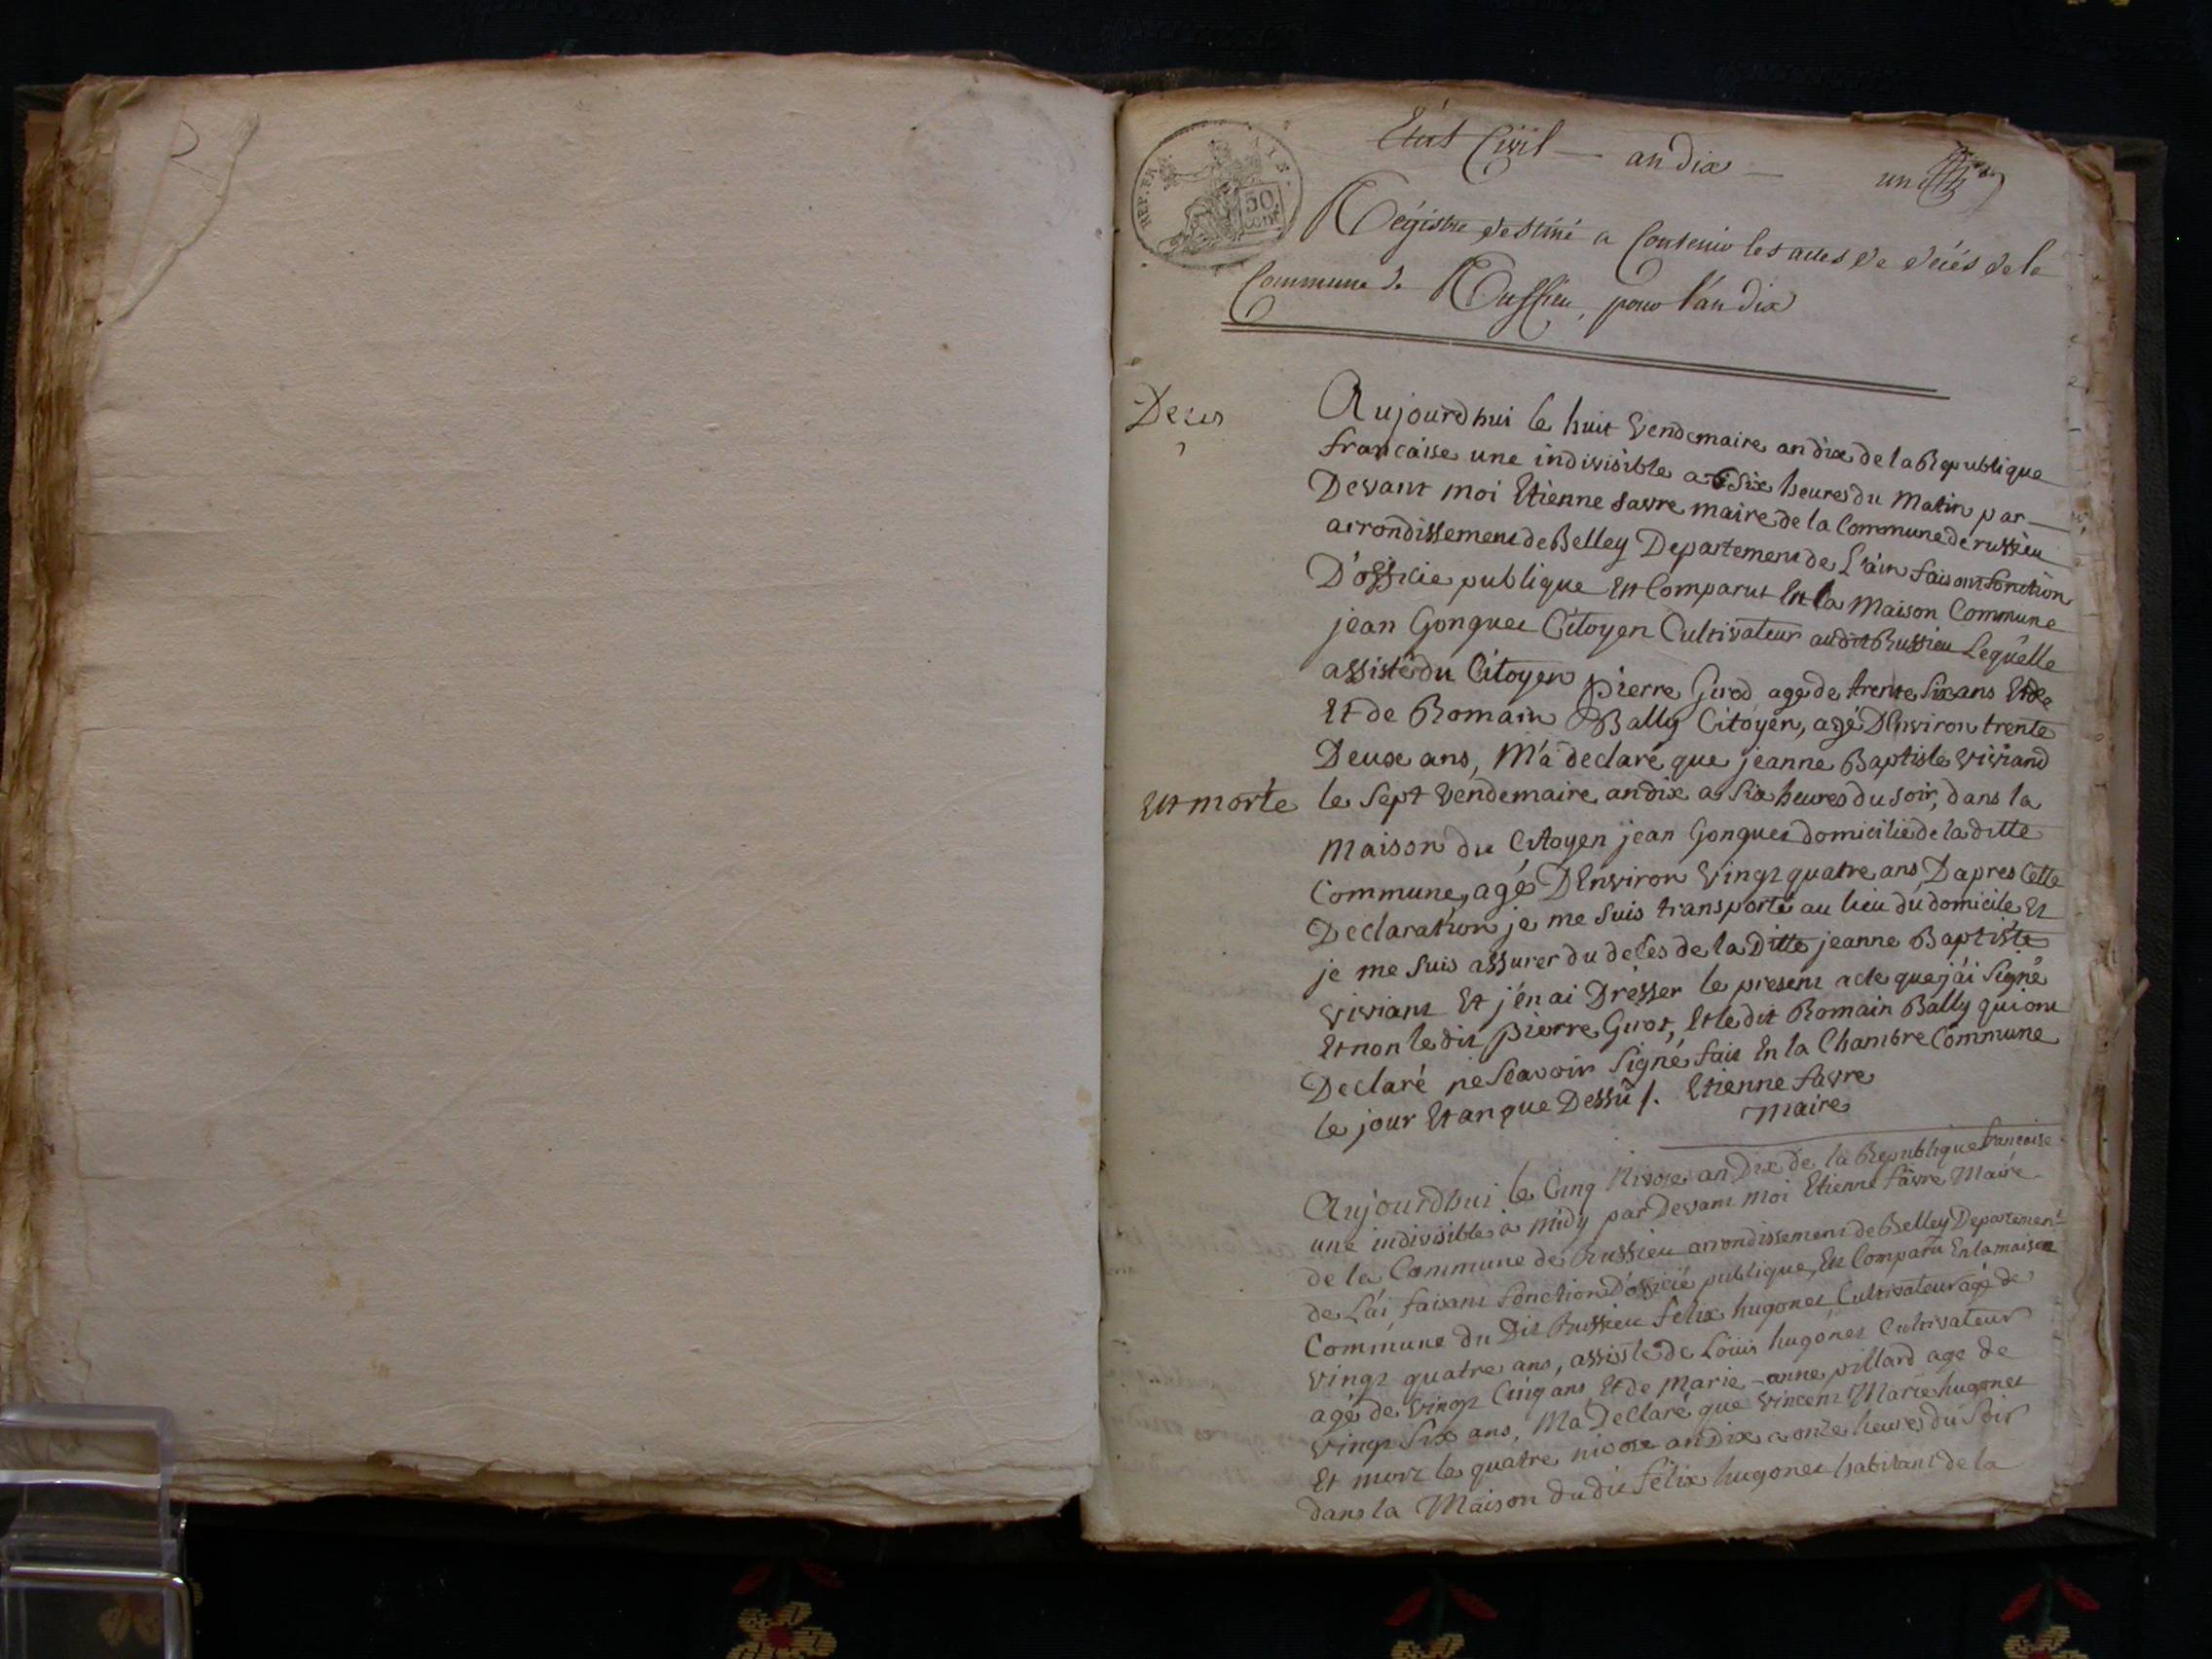 Etat Civil — an dix — un
REP. FRA
50
cent
Régistre destiné a Contenir les actes de décés de la
Commune de Russieu, pour l'an dix
Deces
Aujourdhui le huit Vendemaire an dix de la Republique
francaise une indivisible a Six heures du Matin par —
Devant moi Etienne favre maire de la Commune de russieu
arrondissement de Belley Departement de L'ain faisant fonction
D'officie publique Est Comparut En la Maison Commune
jean Gonguet Citoyen Cultivateur audit Russieu Lequelle
assisté du Citoyen pierre Girod age de trente Six ans Et de
Et de Romain Bally Citoyen, agé D'Environ trente
Deux ans, M'a declaré que jeanne Baptiste Viviand
Est morte le Sept Vendemaire an dix a Six heures du soir, dans la
maison du Citoyen jean Gonguet domicilié de la ditte
Commune, agé D'Environ Vingt quatre ans, D'apres Cette
Declaration je me Suis transporté au lieu du domicile Et
je me Suis assurer du deces de la Ditte jeanne Baptiste
Viviant Et j'en ai Drésser le present acte que j'ai Signé
Et non le dit pierre Girot, Et le dit Romain Bally qui ont
Declaré ne Scavoir Signé fait En la Chambre Commune
le jour Et an que Dessu /. Etienne favre
maire
Aujourdhui le Cinq Nivose an Dix de la Republique francaise
une indivisible a midy par Devant moi Etienne favre Maire
de la Commune de Russieu arrondissement de Belley Departement
de L'ai faisant fonction D'officié publique, Est Comparu En la maison
Commune du Dit Russieu felix hugonet Cultivateur agé de
Vingt quatre ans, assisté de Louis hugonet Cultivateur
agé de Vingt Cinq ans Et de Marie-anne villard age de
Vingt Six ans, M'a Declaré que Vincent Marie hugonet
Et mort le quatre nivose an Dix a onze heures du Soir
dans la Maison du dit félix hugonet habitant de la